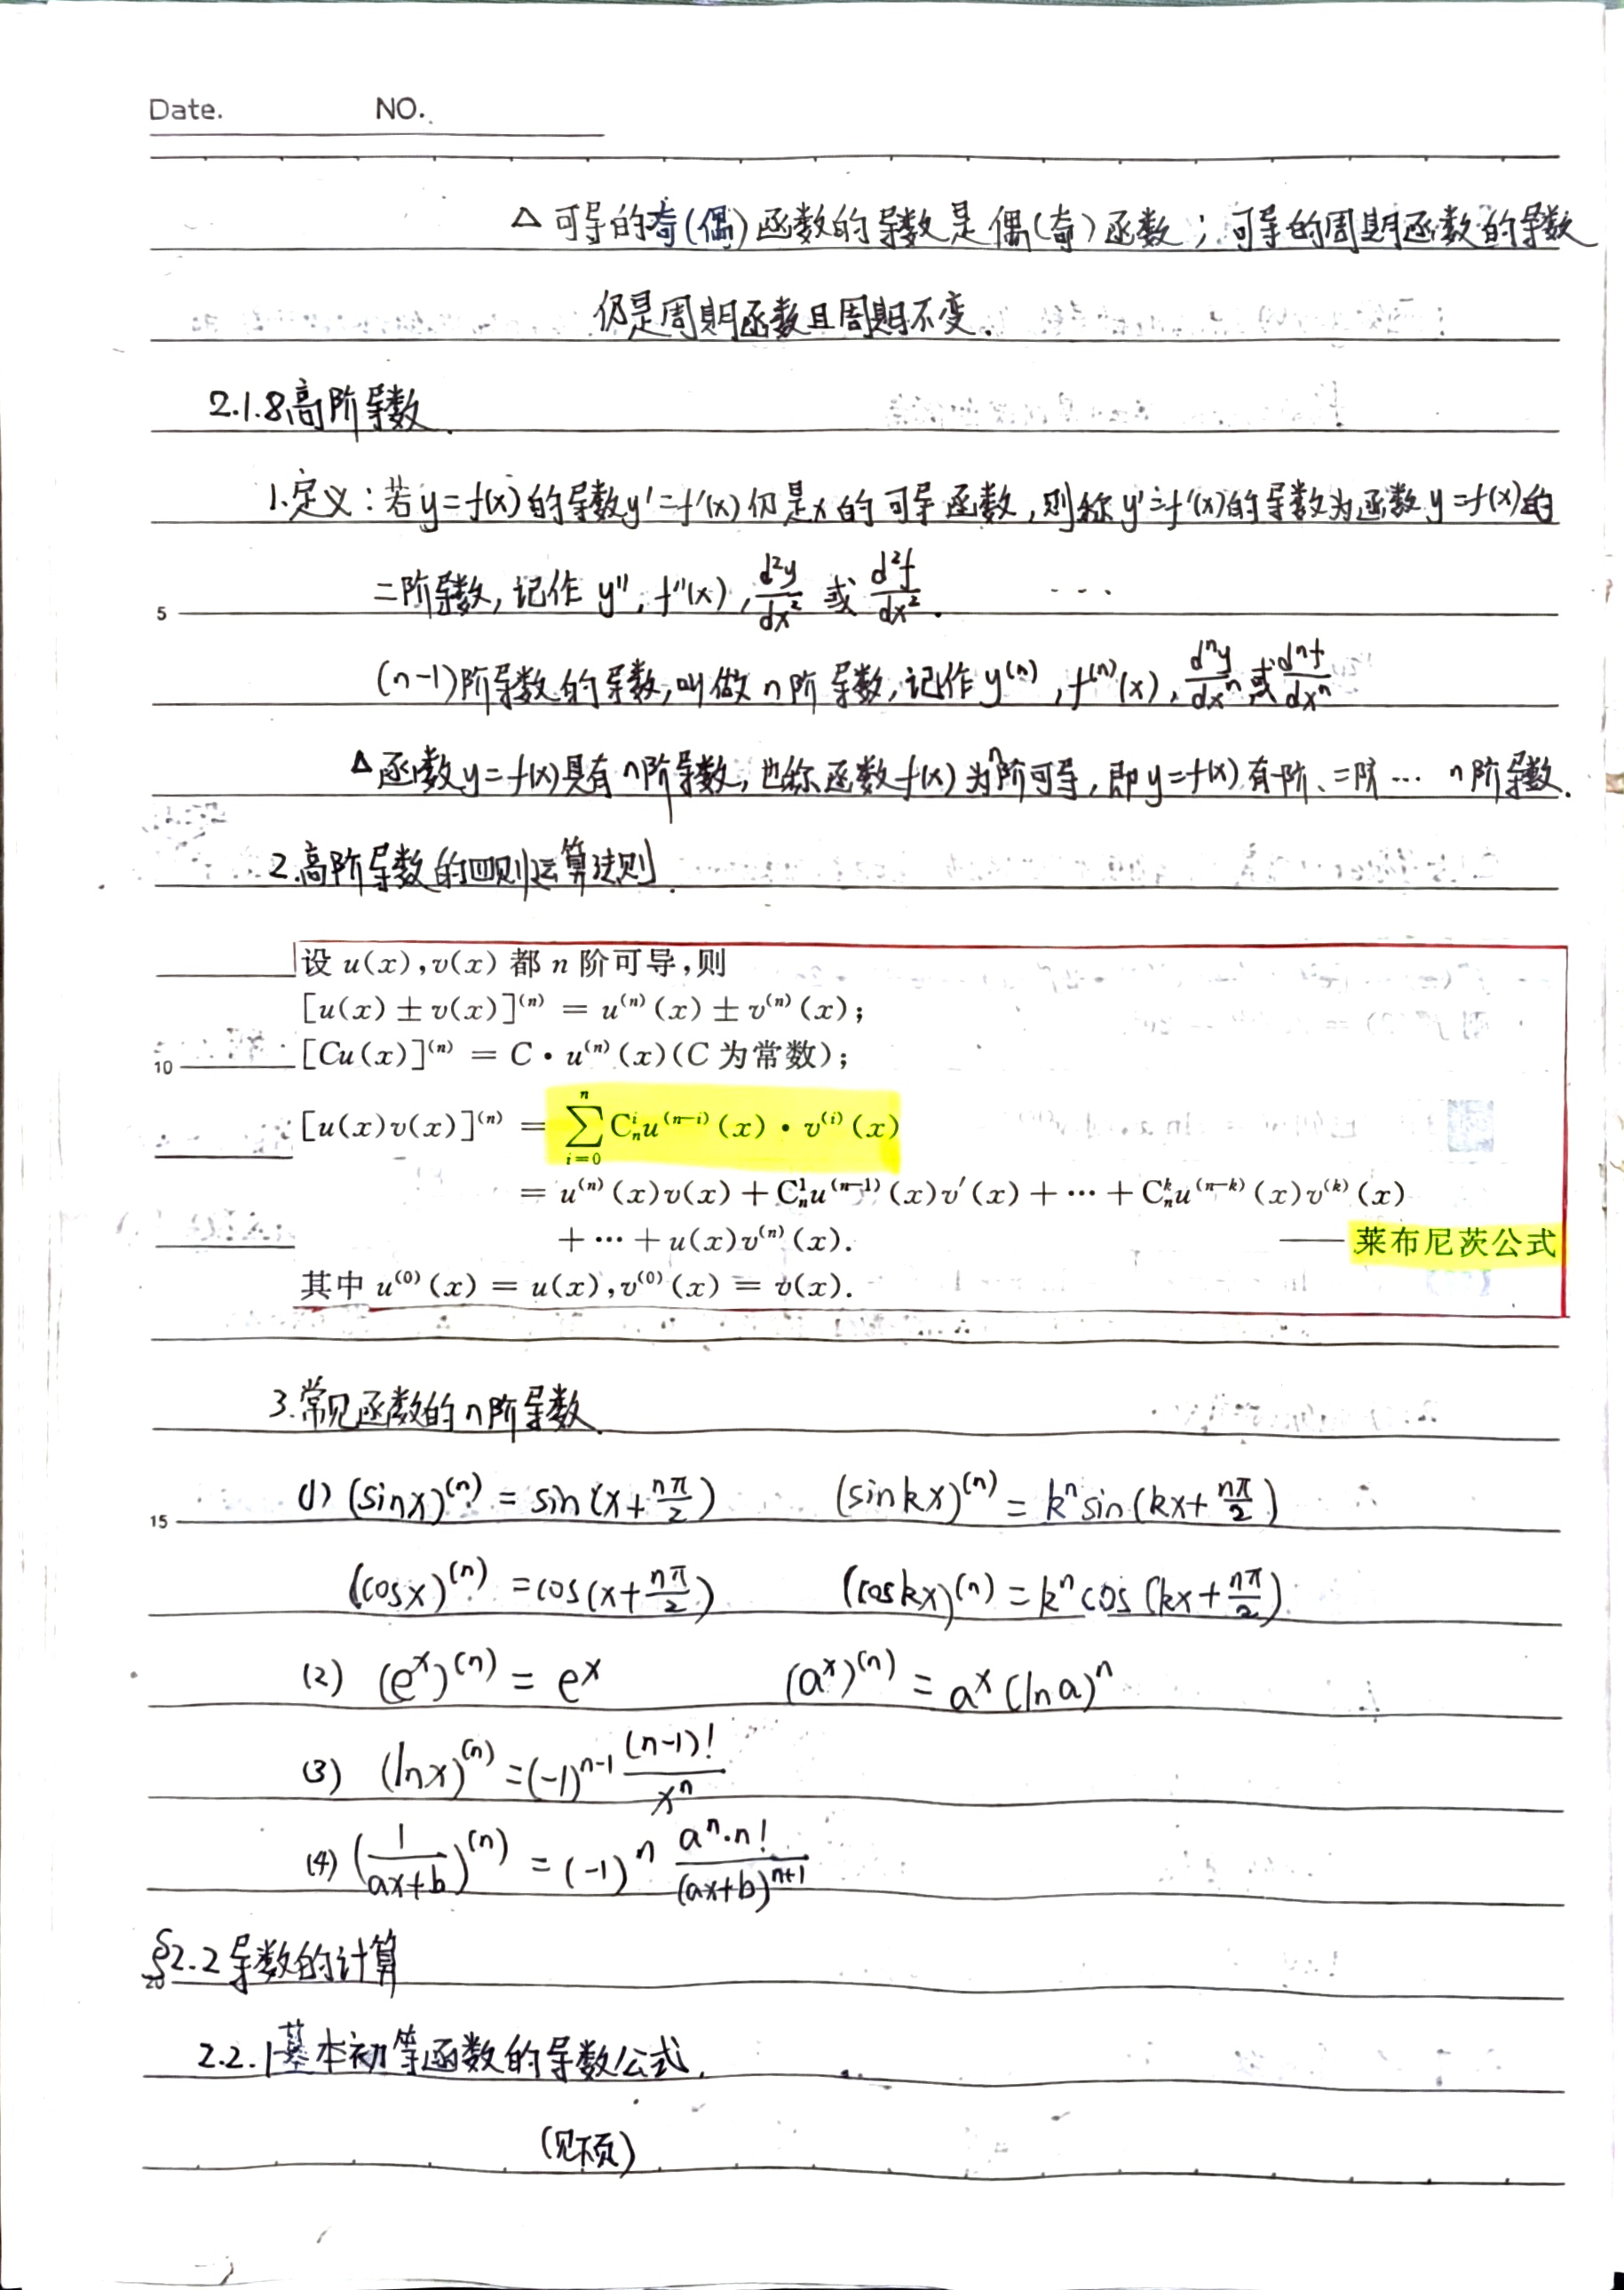 Date. NO.
△可导的奇(偶)函数的导数是偶(奇)函数；可导的周期函数的导数
仍是周期函数且周期不变.
2.1.8高阶导数.
1.定义：若y=f(x)的导数y'=f'(x)仍是x的可导函数,则称y'=f'(x)的导数为函数y=f(x)的
5 二阶导数,记作 y'', f''(x), d²y/dx² 或 d²f/dx². ...
(n-1)阶导数的导数,叫做n阶导数,记作y⁽ⁿ⁾, f⁽ⁿ⁾(x), dⁿy/dxⁿ或dⁿf/dxⁿ
△函数y=f(x)具有n阶导数,也称函数f(x)为n阶可导,即y=f(x)有一阶、二阶… n阶导数.
2.高阶导数的四则运算法则.
设 u(x),v(x) 都 n 阶可导,则
[u(x)±v(x)]⁽ⁿ⁾ = u⁽ⁿ⁾(x)±v⁽ⁿ⁾(x);
10 [Cu(x)]⁽ⁿ⁾ = C·u⁽ⁿ⁾(x)(C 为常数);
[u(x)v(x)]⁽ⁿ⁾ = ∑_{i=0}^{n} C_n^i u^{(n-i)}(x)·v^{(i)}(x)
= u⁽ⁿ⁾(x)v(x)+C_n^1 u^{(n-1)}(x)v'(x)+…+C_n^k u^{(n-k)}(x)v^{(k)}(x)
+…+u(x)v⁽ⁿ⁾(x). ——莱布尼茨公式
其中 u⁽⁰⁾(x) = u(x),v⁽⁰⁾(x) = v(x).
3.常见函数的n阶导数.
15 (1) (sinx)⁽ⁿ⁾ = sin(x+nπ/2) (sinkx)⁽ⁿ⁾ = kⁿsin(kx+nπ/2)
(cosx)⁽ⁿ⁾ = cos(x+nπ/2) (coskx)⁽ⁿ⁾ = kⁿcos(kx+nπ/2)
(2) (eˣ)⁽ⁿ⁾ = eˣ (aˣ)⁽ⁿ⁾ = aˣ(lna)ⁿ
(3) (lnx)⁽ⁿ⁾ = (-1)ⁿ⁻¹ (n-1)!/xⁿ
(4) (1/(ax+b))⁽ⁿ⁾ = (-1)ⁿ aⁿ·n!/(ax+b)ⁿ⁺¹
20 §2.2 导数的计算
2.2.1基本初等函数的导数公式.
(见下页)